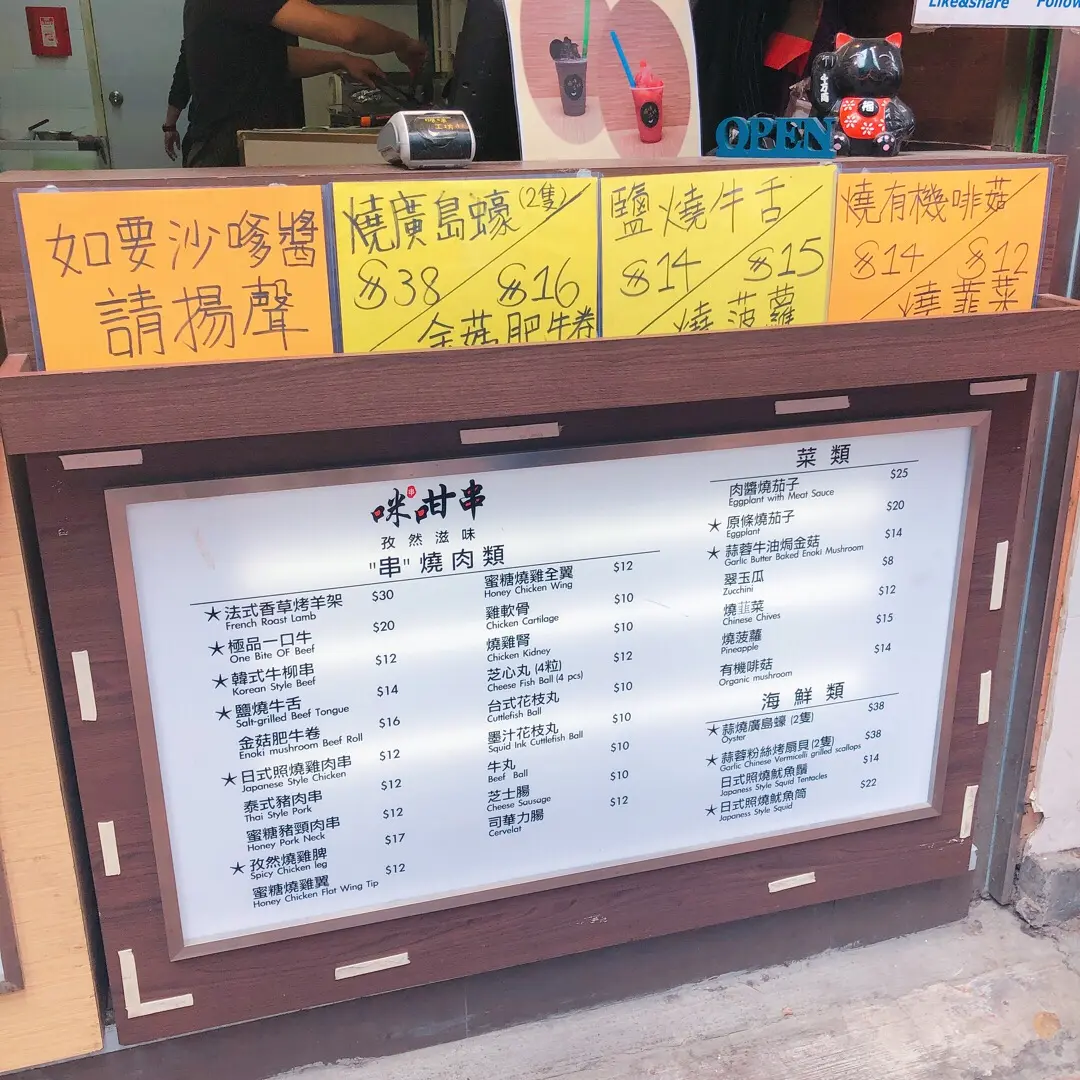 Like&Share Follow
千万両
福
OPEN
如要沙嗲醬
請揚聲
燒廣島蠔(2隻)
$38
$16
金菇肥牛卷
鹽燒牛舌
$14
$15
燒菠蘿
燒有機啡菇
$14
$12
燒韮菜
咪串甘串
孜然滋味
"串"燒肉類
★法式香草烤羊架 $30
French Roast Lamb
★極品一口牛 $20
One Bite OF Beef
★韓式牛柳串 $12
Korean Style Beef
★鹽燒牛舌 $14
Salt-grilled Beef Tongue
金菇肥牛卷 $16
Enoki mushroom Beef Roll
★日式照燒雞肉串 $12
Japanese Style Chicken
泰式豬肉串 $12
Thai Style Pork
蜜糖豬頸肉串 $12
Honey Pork Neck
★孜然燒雞脾 $17
Spicy Chicken leg
蜜糖燒雞翼 $12
Honey Chicken Flat Wing Tip
蜜糖燒雞全翼 $12
Honey Chicken Wing
雞軟骨 $10
Chicken Cartilage
燒雞腎 $10
Chicken Kidney
芝心丸(4粒) $12
Cheese Fish Ball (4 pcs)
台式花枝丸 $10
Cuttlefish Ball
墨汁花枝丸 $10
Squid Ink Cuttlefish Ball
牛丸 $10
Beef Ball
芝士腸 $10
Cheese Sausage
司華力腸 $12
Cervelat
菜類
肉醬燒茄子 $25
Eggplant with Meat Sauce
★原條燒茄子 $20
Eggplant
★蒜蓉牛油焗金菇 $14
Garlic Butter Baked Enoki Mushroom
翠玉瓜 $8
Zucchini
燒韮菜 $12
Chinese Chives
燒菠蘿 $15
Pineapple
有機啡菇 $14
Organic mushroom
海鮮類
★蒜燒廣島蠔(2隻) $38
Oyster
★蒜蓉粉絲烤扇貝(2隻) $38
Garlic Chinese Vermicelli grilled scallops
日式照燒魷魚鬚 $14
Japanese Style Squid Tentacles
★日式照燒魷魚筒 $22
Japanese Style Squid